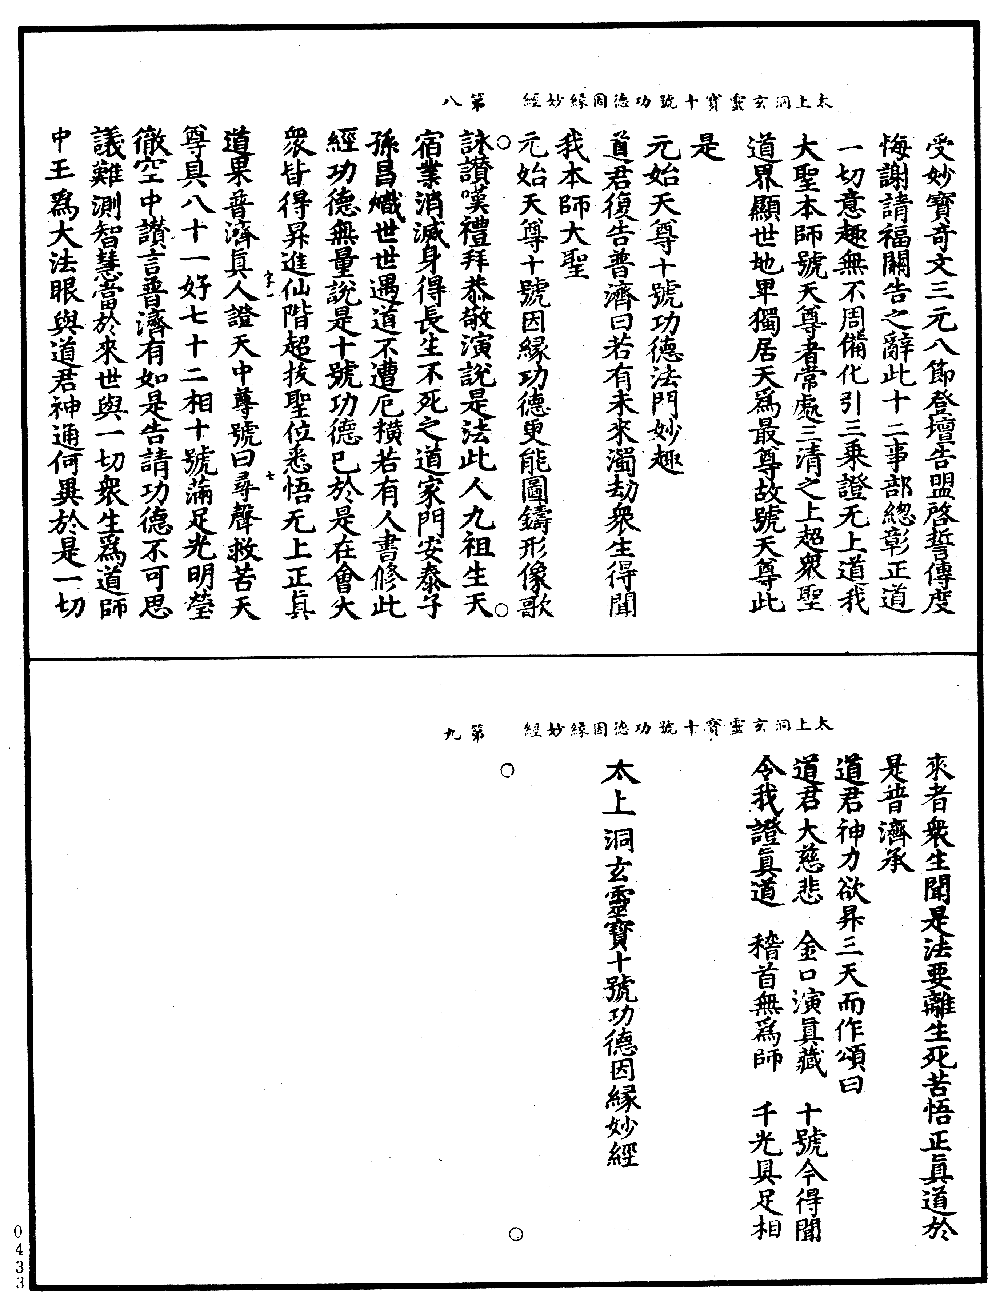 太上洞玄靈寶十號功德因緣妙經　第八
受妙寶奇文三元八節登壇告盟啓誓傳度
悔謝請福關告之辭此十二事部總彰正道
一切意趣無不周備化引三乘證无上道我
大聖本師號天尊者常處三清之上超衆聖
道界顯世地卑獨居天爲最尊故號天尊此
是
元始天尊十號功德法門妙趣
道君復告普濟曰若有未來濁劫衆生得聞
我本師大聖
元始天尊十號因緣功德更能圖鑄形像歌
詠讃嘆禮拜恭敬演說是法此人九祖生天
宿業消滅身得長生不死之道家門安泰子
孫昌熾世世遇道不遭厄橫若有人書修此
經功德無量說是十號功德巳於是在會大
衆皆得昇進仙階超拔聖位悉悟无上正眞
道果普濟眞人證天中尊號曰尋聲救苦天
尊具八十一好七十二相十號滿足光明瑩
徹空中讃言普濟有如是告請功德不可思
議難測智慧當於來世與一切衆生爲道師
中王爲大法眼與道君神通何異於是一切
太上洞玄靈寶十號功德因緣妙經　第九
來者衆生聞是法要離生死苦悟正眞道於
是普濟承
道君神力欲昇三天而作頌曰
道君大慈悲　金口演眞藏　十號令得聞
令我證眞道　稽首無爲師　千光具足相
太上洞玄靈寶十號功德因緣妙經
0433